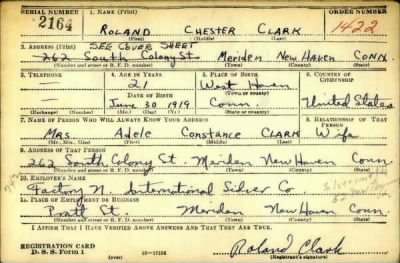 SERIAL NUMBER 1. NAME (Print) ORDER NUMBER
2164 ROLAND CHESTER CLARK 1422
(First) (Middle) (Last)
2. ADDRESS (Print) SEE COVER SHEET
262 South Colony St. Meriden New Haven Conn.
(Number and street or R. F. D. number) (Town) (County) (State)
3. TELEPHONE 4. AGE IN YEARS 5. PLACE OF BIRTH 6. COUNTRY OF CITIZENSHIP
21 West Haven
DATE OF BIRTH (Town or county)
June 30 1919 Conn. United States
(Exchange) (Number) (Mo.) (Day) (Yr.) (State or country)
7. NAME OF PERSON WHO WILL ALWAYS KNOW YOUR ADDRESS 8. RELATIONSHIP OF THAT PERSON
Mrs. Adele Constance CLARK Wife
(Mr., Mrs., Miss) (First) (Middle) (Last)
9. ADDRESS OF THAT PERSON
262 South Colony St. Meriden New Haven Conn.
(Number and street or R. F. D. number) (Town) (County) (State)
10. EMPLOYER'S NAME
Factory N. International Silver Co.
11. PLACE OF EMPLOYMENT OR BUSINESS
Pratt St. Meriden New Haven Conn.
(Number and street or R. F. D. number) (Town) (County) (State)
I AFFIRM THAT I HAVE VERIFIED ABOVE ANSWERS AND THAT THEY ARE TRUE.
REGISTRATION CARD
D. S. S. Form 1 (over) Roland Clark
(Registrant's signature)